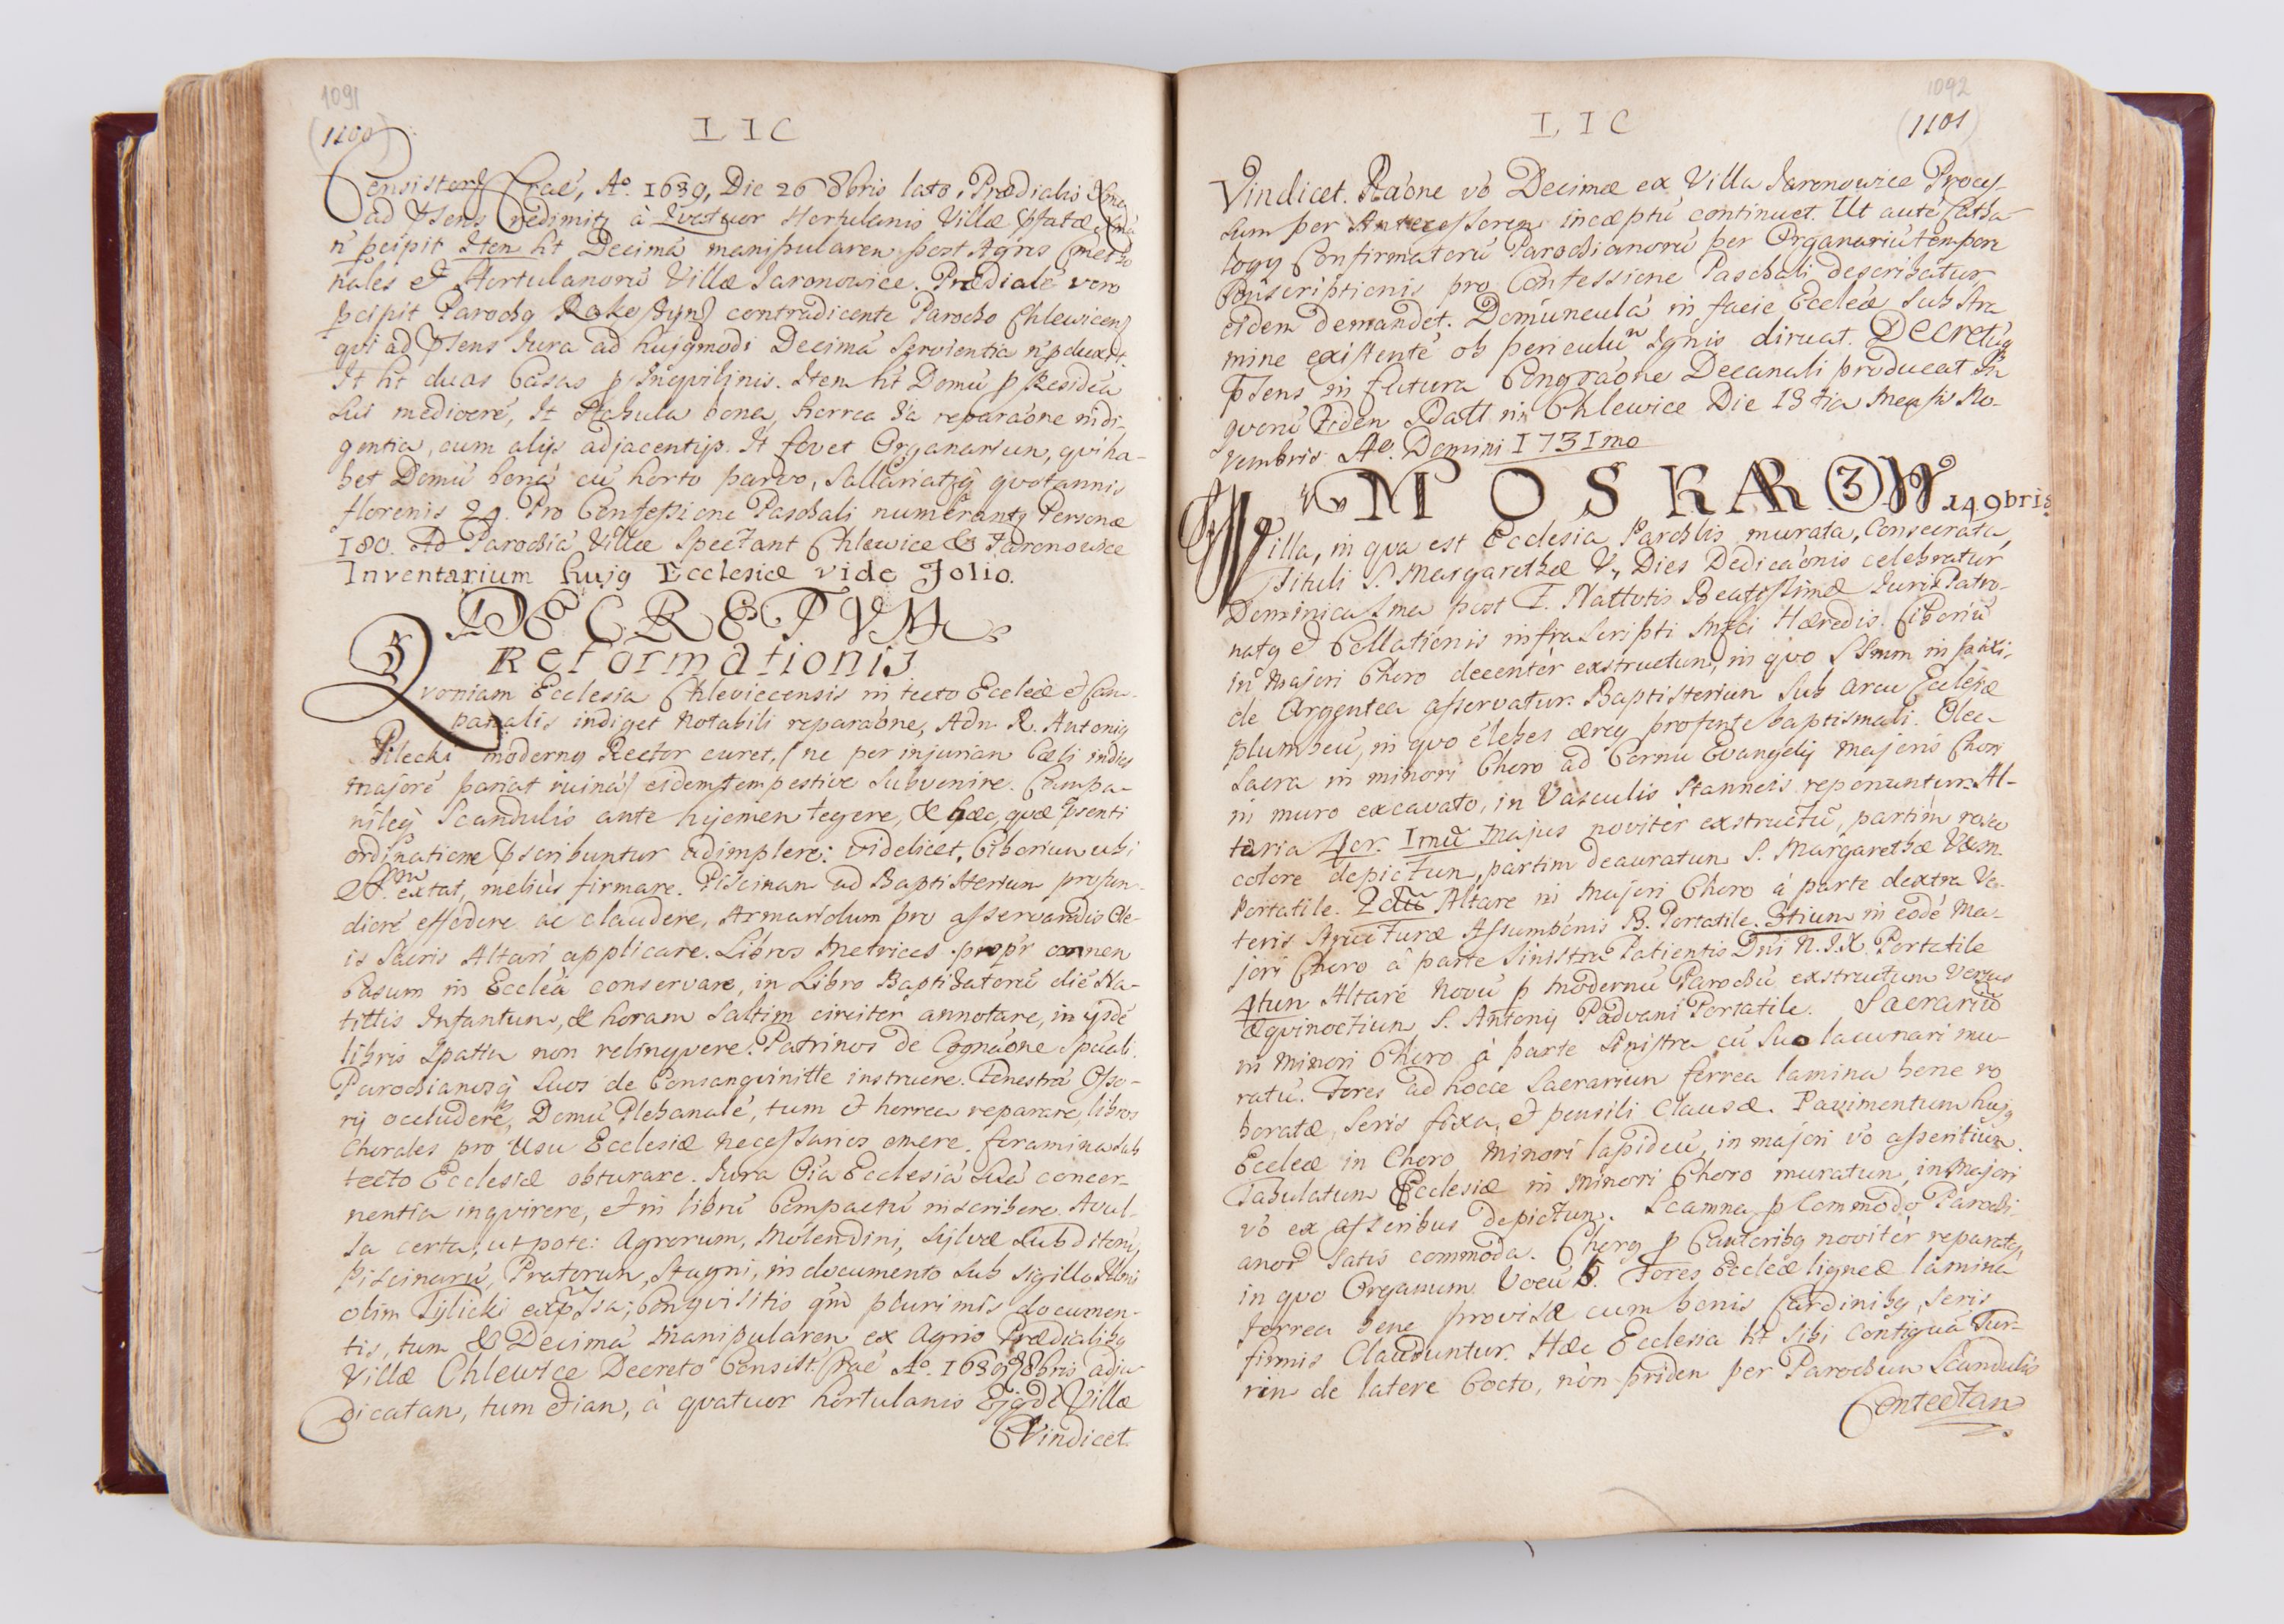 1091
(1100)
L I C
Consistory Crac, Aº. 1639, Die 26 8bris lato, Prædialis
ad psens redimitꝫ à quatuor Hortulanis Villæ pfatæ
n̄ pcipit Item ht Decimā manipularem post Agros Cmetho
nales et Hortulanorū Villæ Jaronowice. Prædialē vero
pcipit Parochꝫ Rakoszyn contradicente Parocho Chlewicen
qvi ad psens Jura ad hujꝫmodi Decimā servientia n̄ pduxit.
It ht duas Casas p Inqvilinis. Item ht Domū p Residēa
sui mediocrē, It Stabula bona, horrea
gentia, cum alijs adjacentijs. It fovet Organarium, qvi ha-
bet Domū bonā cū horto parvo, Sallariatꝫ qvotannis
florenis 24. Pro Confessione Paschali numerantꝫ Personæ
180. Ad Parochiā Villæ Spectant Chlewice & Jaronowice
Inventarium hujꝫ Ecclesiæ vide Folio.
DECRETVM
Reformationis
Qvoniam Ecclesia Chleviecensis in tecto Ecclēæ et Cam-
panalis indiget notabili reparaōne, Adm R. Antonig
Pilecki modernꝫ Rector curet, (ne per injuriam Cœli indies
majorē pariat ruinā) eidem tempestive Subvenire. Campa-
nileq́ Scandulis ante hyemem tegere, & hæc, quæ psenti
ordinatione pscribuntur adimplere: videlicet, Ciborium ubi
SSmm extat, meliùs firmare. Piscinam ad Baptisterium profun-
diorē effodere ac claudere, Armariolum pro asservandis Ole-
is Sacris Altari applicare. Libros Metrices propr omnem
Casum in Ecclēa conservare, in Libro Baptizatorū diē Na-
tittis Infantum, & horam Saltim circiter annotare, in ijsdē
libris Spatia non relinqvere. Patrinos de Cognaōne Spūali.
Parochianosq́ suos de Consangvinitte instruere. Fenestrā Osso-
rij occludere, Domū Plebanalē, tum et horrea reparare, libros
Chorales pro Usu Ecclesiæ necessarios emere. foramina sub
tecto Ecclesiæ obturare. Jura Oīa Ecclesiā Suā concer-
nentia inqvirere, et in librū Compactū inscribere. Avul-
sa certa; utpote: Agrorum, Molendini, Sylvæ Subditorū,
Piscinarū, Pratorum, Stagni, in documento sub sigillo
olim Tylicki expssa; Conqvisitis qm̄ plurimis documen-
tis, tum & Decimā Manipularem ex Agris Prædialibꝫ
Villæ Chlewice Decreto Consist. Crac Aº. 1639 8bris adju
dicatam, tum etiam, à qvatuor hortulanis Ejꝫdē Villæ
Vindicet.
1092
(1101)
L I C
Vindicet. Raōne vō Decimæ ex Villa Jaronowice Proces-
sum per Antecessorem incæptū continuet. Ut autē Catha-
logꝫ Confirmatorū Parochianorū per Organariū tempore
Conscriptionis pro Confessione Paschali describatur
eidem demandet. Domunculā in facie Ecclēæ Sub Stra
mine existentē ob periculū Ignis diruat. Decretūq
psens in futura Congraōne Decanali producat In
qvorū Fidem Datt. in Chlewice Die 13tia Mensis No-
vembris Aº. Domini 1731mo
MOSKARZÓW 14 9bris
Villa, in qva est Ecclesia Parchlis murata, Consecrata,
Tituli S. Margarethæ V., Dies Dedicaōnis celebratur
Dominica Ima post F. Nattvtis Beatissimæ Juris Patro-
natꝫ et Collationis infrascripti Mfci Hæredis. Ciboriū
in Majori Choro decentèr exstructum, in qvo SSmm in paxi-
de Argentea asservatur. Baptisterium sub arcu Ecclesiæ
plumbeū, in qvo élebes æreꝫ pro fonte baptismali. Olea
Sacra in minori Choro ad Cornu Evangelij Majoris Chori
in muro excavato, in Vasculis Stanneis reponuntur. Al-
taria 4or. Imū Majus noviter exstructū, partim roseo
colore depictum, partim deauratum S. Margarethæ V. et M.
Portatile. 2dū Altare in Majori Choro à parte dextra Ve-
teris Structuræ Assumpōnis B. Portatile. 3tium in eodē Ma-
jori Choro à parte Sinistrā Patientis Dni N. J. X. Portatile
4tum Altarē Novū p modernū Parochū exstructum versus
Æqvinoctium S. Antonij Padvani Portatile. Sacrariū
in Minori Choro à parte Sinistra cū suo lacunari mu-
ratū. Fores ad hocce Sacrarium ferrea lamina bene ro
boratæ, Seris fixa, et pensili Clausæ. Pavimentum hujꝫ
Ecclēæ in Choro Minori lapideū, in majori vō asseritium.
Tabulatum Ecclesiæ in Minori Choro muratum, in Majori
vō ex asseribus depictum. Scamna p Commodo Parochi
anor Satis commoda. Chorꝫ p Cantoribꝫ novitèr reparatꝫ,
in qvo Organum Vocū 5. Fores Ecclēæ ligneæ lamina
ferrea bene provisæ cum bonis Cardinibꝫ, Seris
firmis Clauduntur. Hæc Ecclesia ht Sibi Contiguā Tur-
rim de latere Cocto, nòn pridem per Parochum Scandulis
Contectam